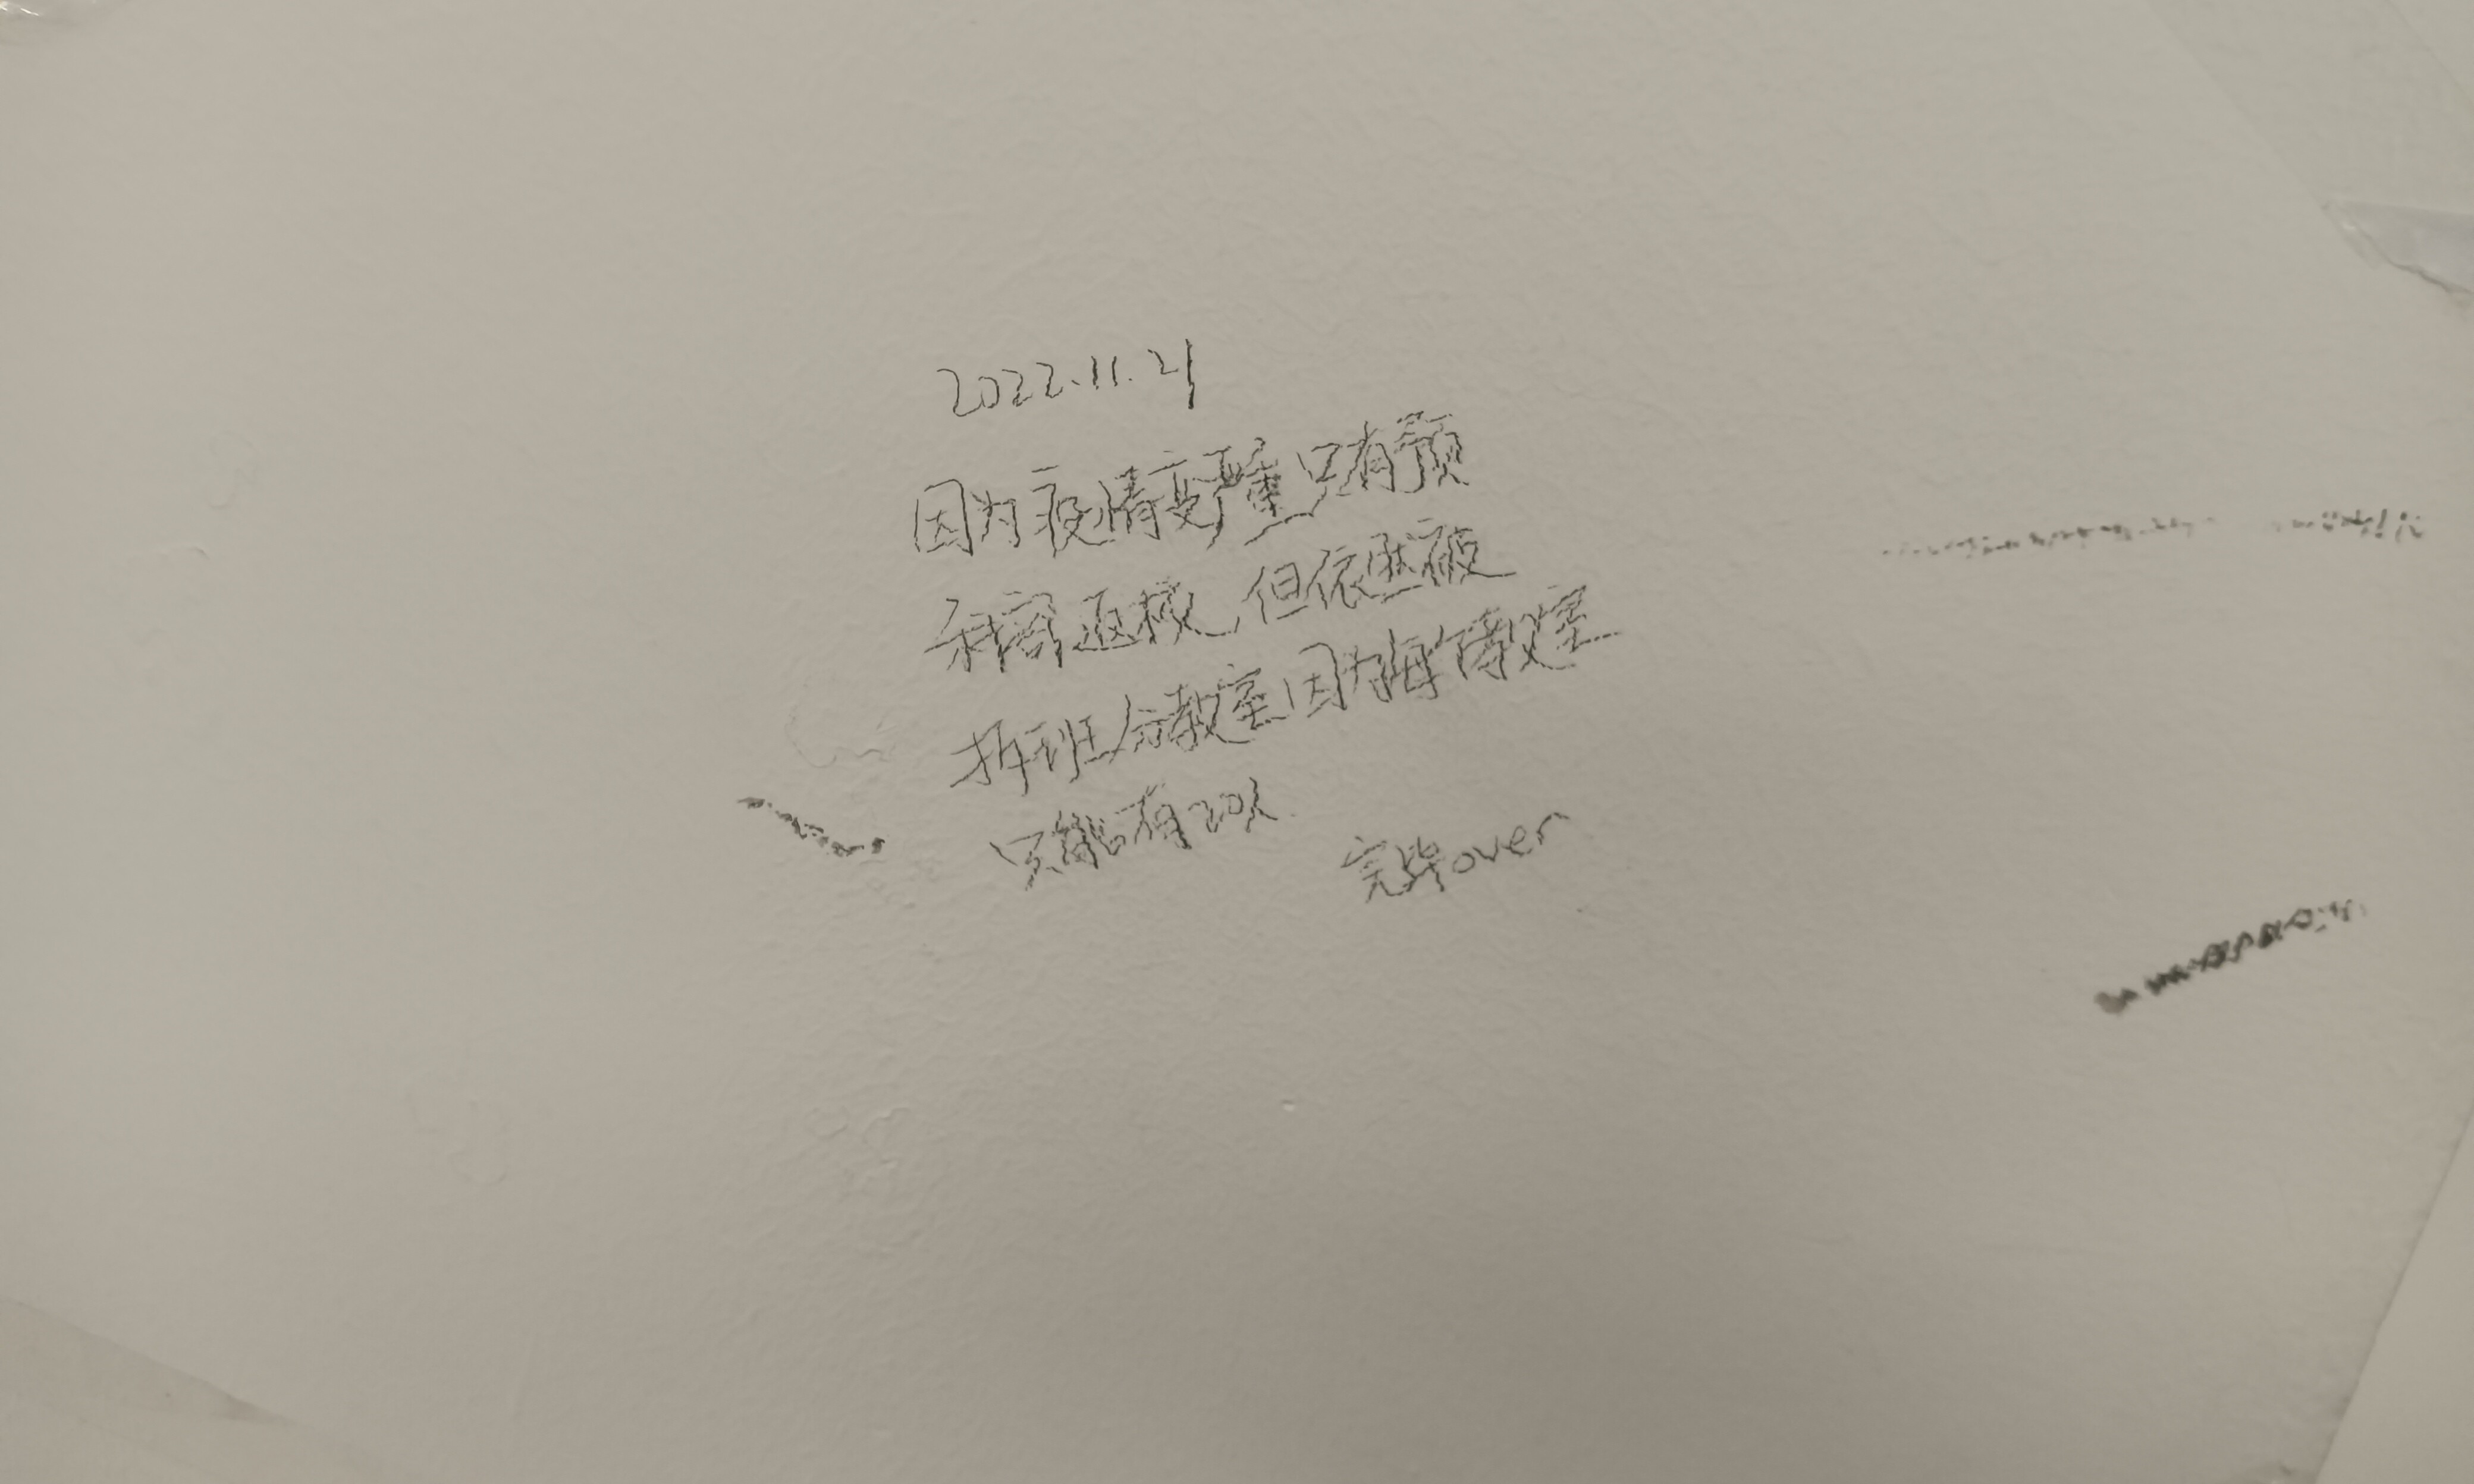 2022.11.21
因为疫情变严重只有预
科高返校,但依然被
拆班分教室因为每个教室
只能有20人.
完毕over